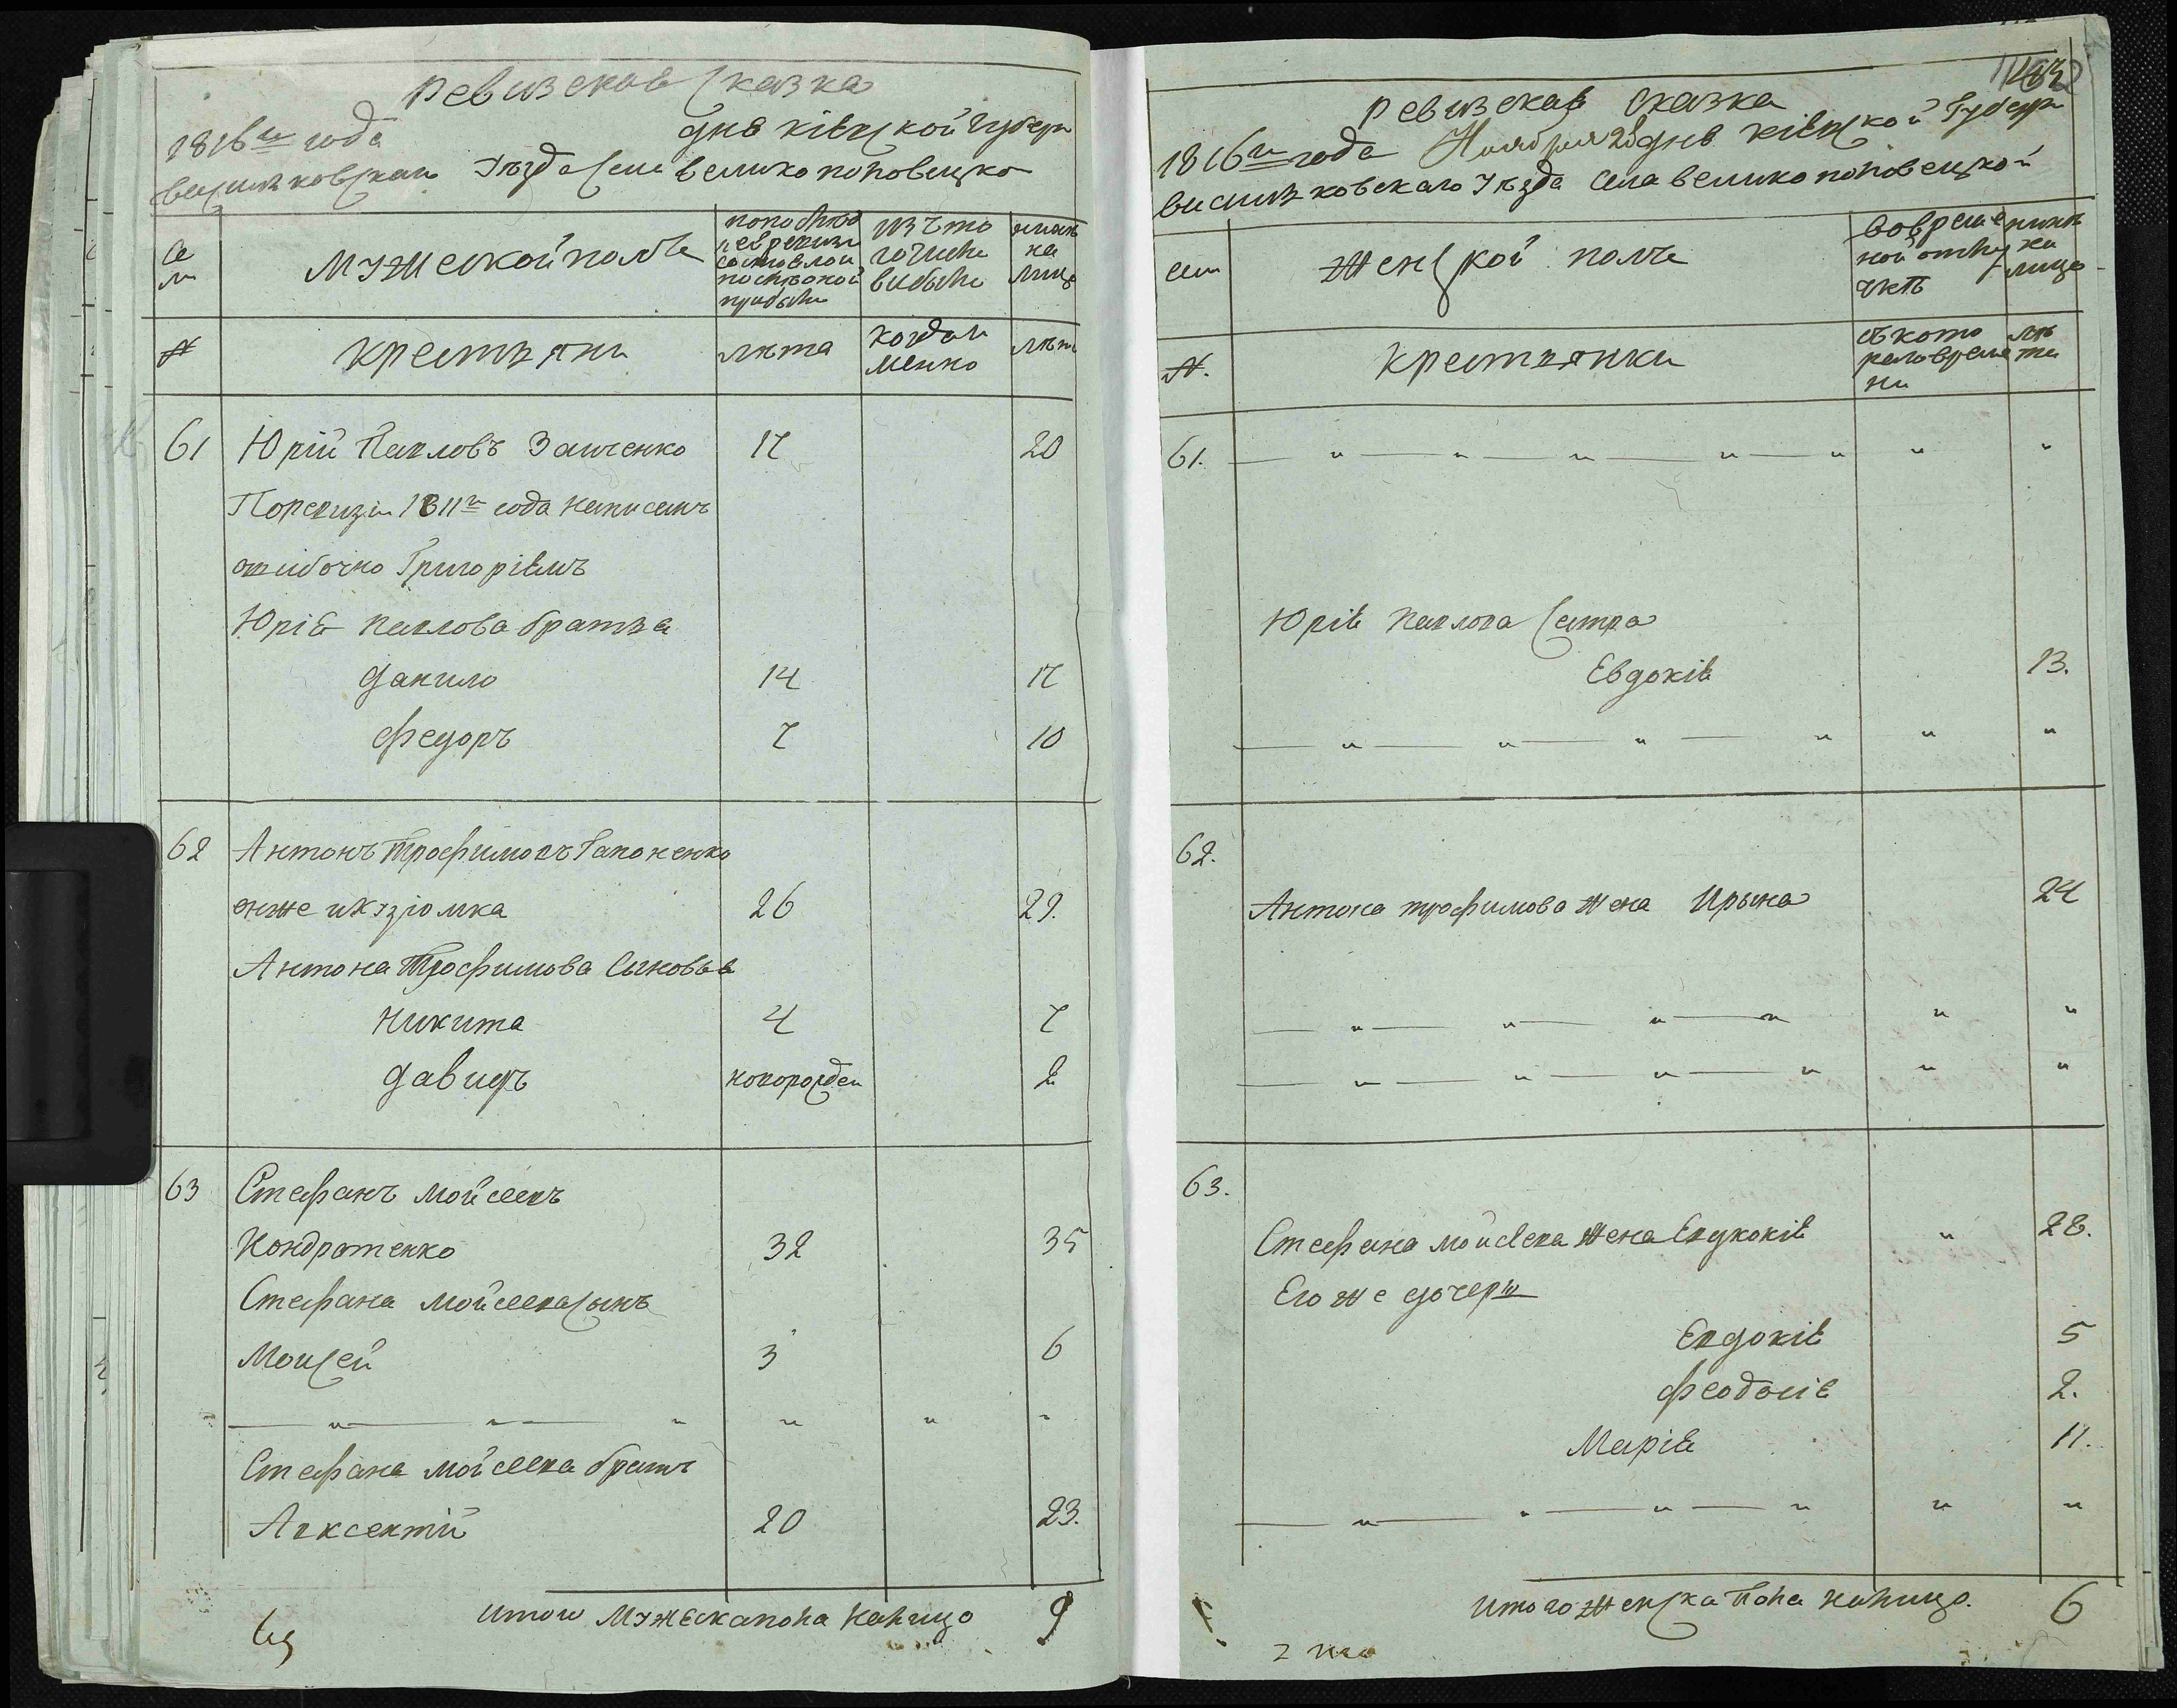 Ревизская сказка
1816го года дня кіевской губерн
васильковскаго уезда села великополовецко
се м
мужеской полъ
попоследней ревизіи состояло и после оной прибыло
изъ того числа выбыло
ныне на лицо
№
крестьяни
лѣта
когда и менно
лѣта
61 Юрій Павловъ Заиченко 17 20
Поревизіи 1811го года написанъ
ошибочно Григоріемъ
Юрія Павлова братья
Данило 14 17
Федоръ 7 10
62 Антонъ Трофимовъ Гапоненко
онже и Кузіомка 26 29.
Антона Трофимова сыновья
Никита 4 7
Давидъ новорожден 2
63 Стефанъ Мойсеевъ
Кондратенко 32 35
Стефана Мойсеева сынъ
Моисей 3 6
— " — " — " " " "
Стефана Мойсеева братъ
Авксентій 20 23.
итого мужеска пола налицо 9
Ревизская сказка
1816го года Ноября 28 дня кіевской губерн
васильковскаго уезда села великополовецкой
сем
женской полъ
вовременной отлучкѣ
ныне на лицо
№.
крестьянки
съ кото раго време ни
лѣ та
61. — " — " — " — " — " " "
Юрія Павлова сестра
Евдокія 13.
— " — " — " — " " "
62.
Антона трофимова жена Ирына 24
— " — " — " — " " "
— " — " — " — " " "
63.
Стефана мойсеева жена Евдокія " 28.
Его же дочери
Евдокія 5
Феодосія 2.
Марія 11.
— " — " — " — " " "
итого женска пола налицо. 6